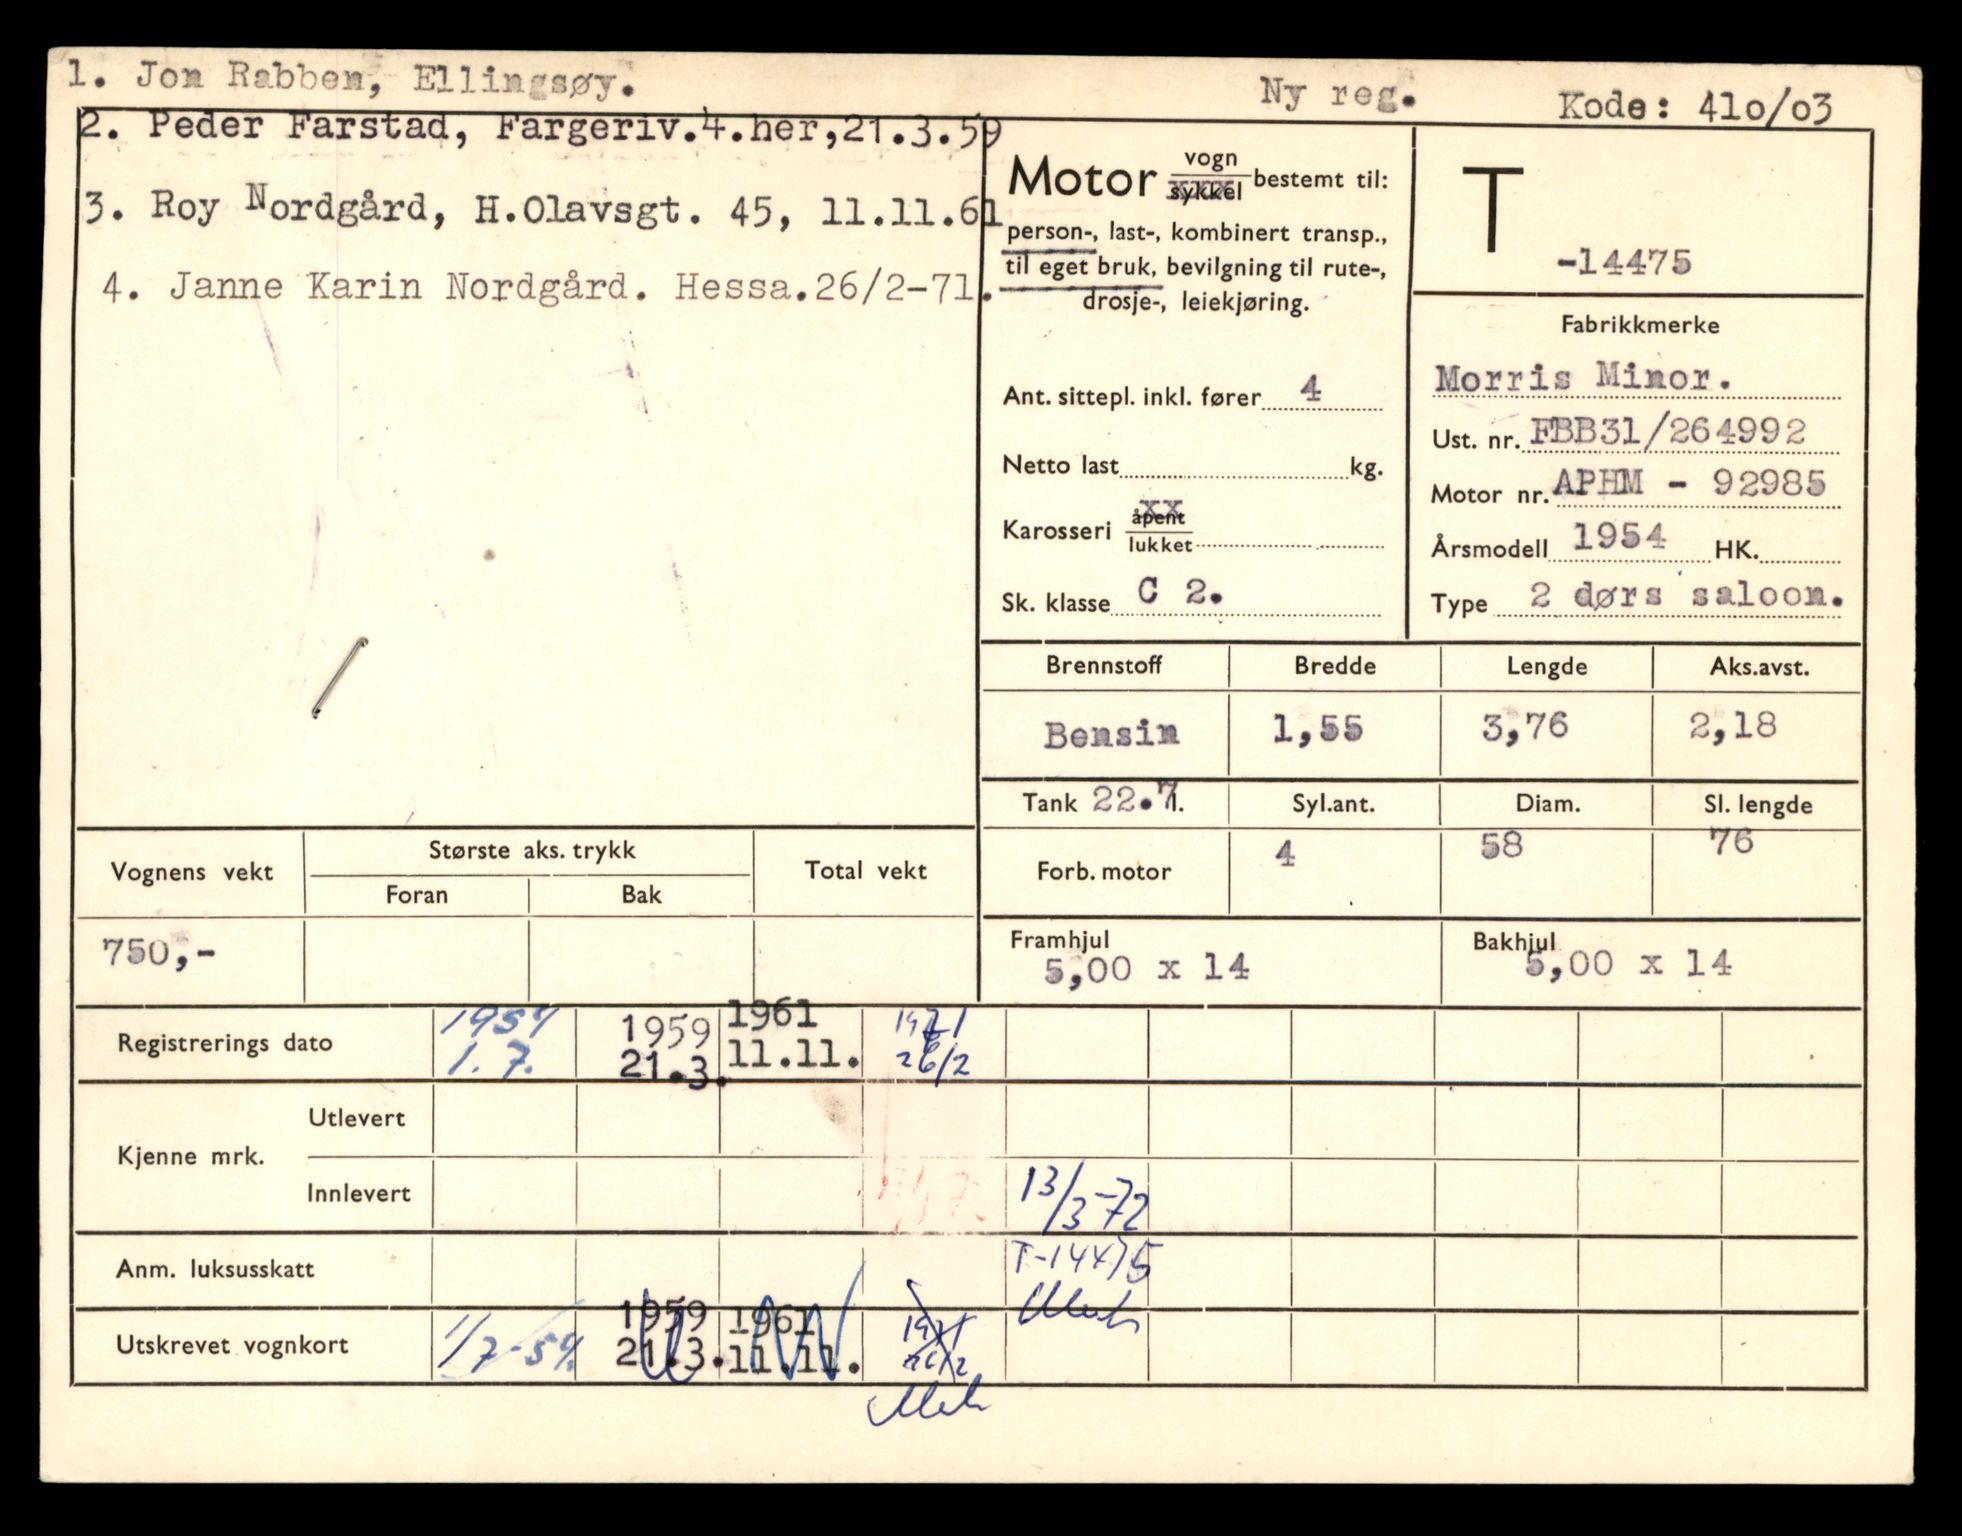 1. Jon Rabben, Ellingsøy.
Ny reg.
Kode: 41o/o3
2. Peder Farstad, Fargeriv.4.her,21.3.59
3. Roy Nordgård, H.Olavsgt. 45, 11.11.61
4. Janne Karin Nordgård. Hessa.26/2-71.
Motor vogn sykkel bestemt til:
person-, last-, kombinert transp.,
til eget bruk, bevilgning til rute-,
drosje-, leiekjøring.
Ant. sittepl. inkl. fører 4
Netto last kg.
Karosseri åpent lukket
Sk. klasse C 2.
T
-14475
Fabrikkmerke
Morris Minor.
Ust. nr. FBB31/264992
Motor nr. APHM - 92985
Årsmodell 1954 HK.
Type 2 dørs saloon.
Brennstoff Bredde Lengde Aks.avst.
Bensin 1,55 3,76 2,18
Tank 22.7 l. Syl.ant. Diam. Sl. lengde
Forb. motor 4 58 76
Framhjul 5,00 x 14
Bakhjul 5,00 x 14
Vognens vekt Største aks. trykk Total vekt
Foran Bak
750,-
Registrerings dato 1954 1959 1961 1971
1.7. 21.3. 11.11. 26/2
Kjenne mrk.
Utlevert
Innlevert 13/3-72
Anm. luksusskatt T-14475
Utskrevet vognkort 1/7-54. 1959 1961 1971
21.3. 11.11. 26/2